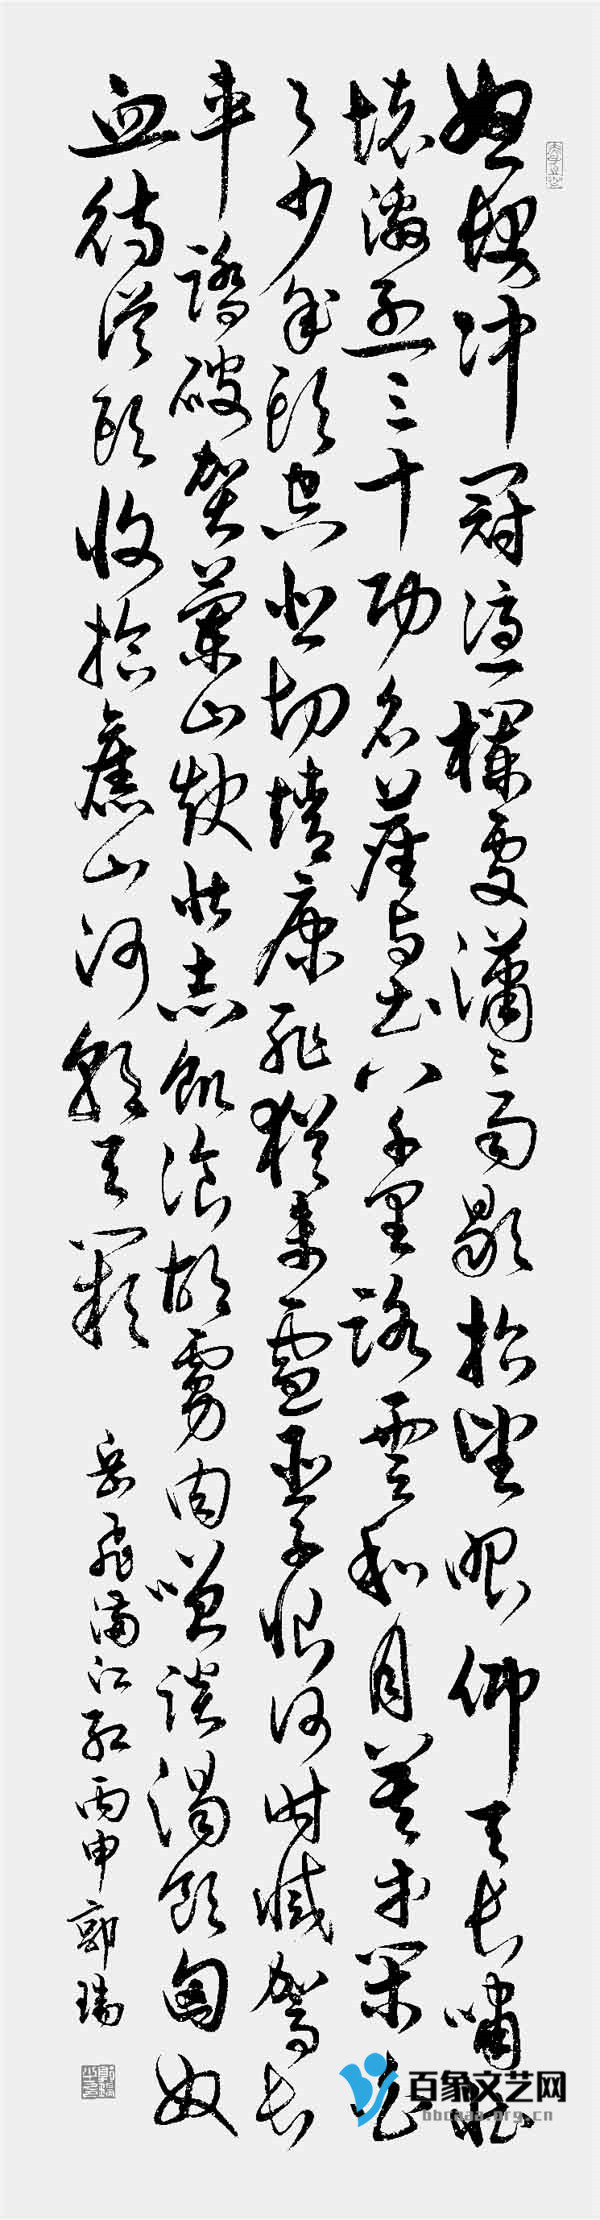 怒髮冲冠憑欄處瀟〻雨歇抬望眼仰天長嘯壯
懷激烈三十功名塵與土八千里路雲和月莫等閑白
了少年頭空悲切靖康恥猶未雪臣子恨何時滅駕長
車踏破賀蘭山缺壯志飢湌胡虜肉笑談渴飲匈奴
血待從頭收拾舊山河朝天闕
岳飛滿江紅丙申郭瑞
百象文艺网